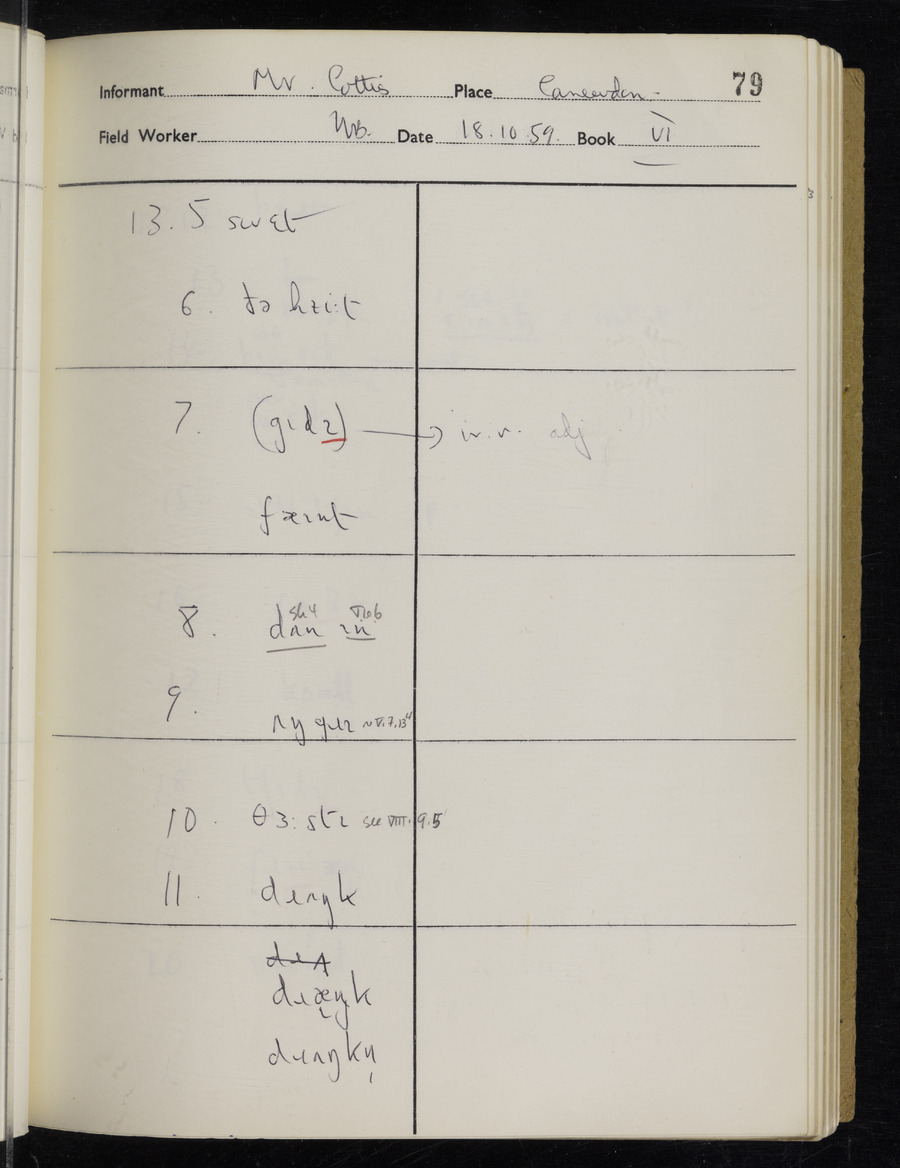 Informant Mr. Cottis Place Canewdon 79
Field Worker Date 18.10.59. Book VI
13.5 swɛt
6. tə hɪiːt
7. (gɪdɪ) → i.v. adj
fæɪnt
8. dʌn ɪn
9. ʌŋgɹɪ
10. θɜːstɪ see VIII.9.5
11. dɹʌŋk
dɹʌ
dɹæŋk
dɹʌŋkn̩